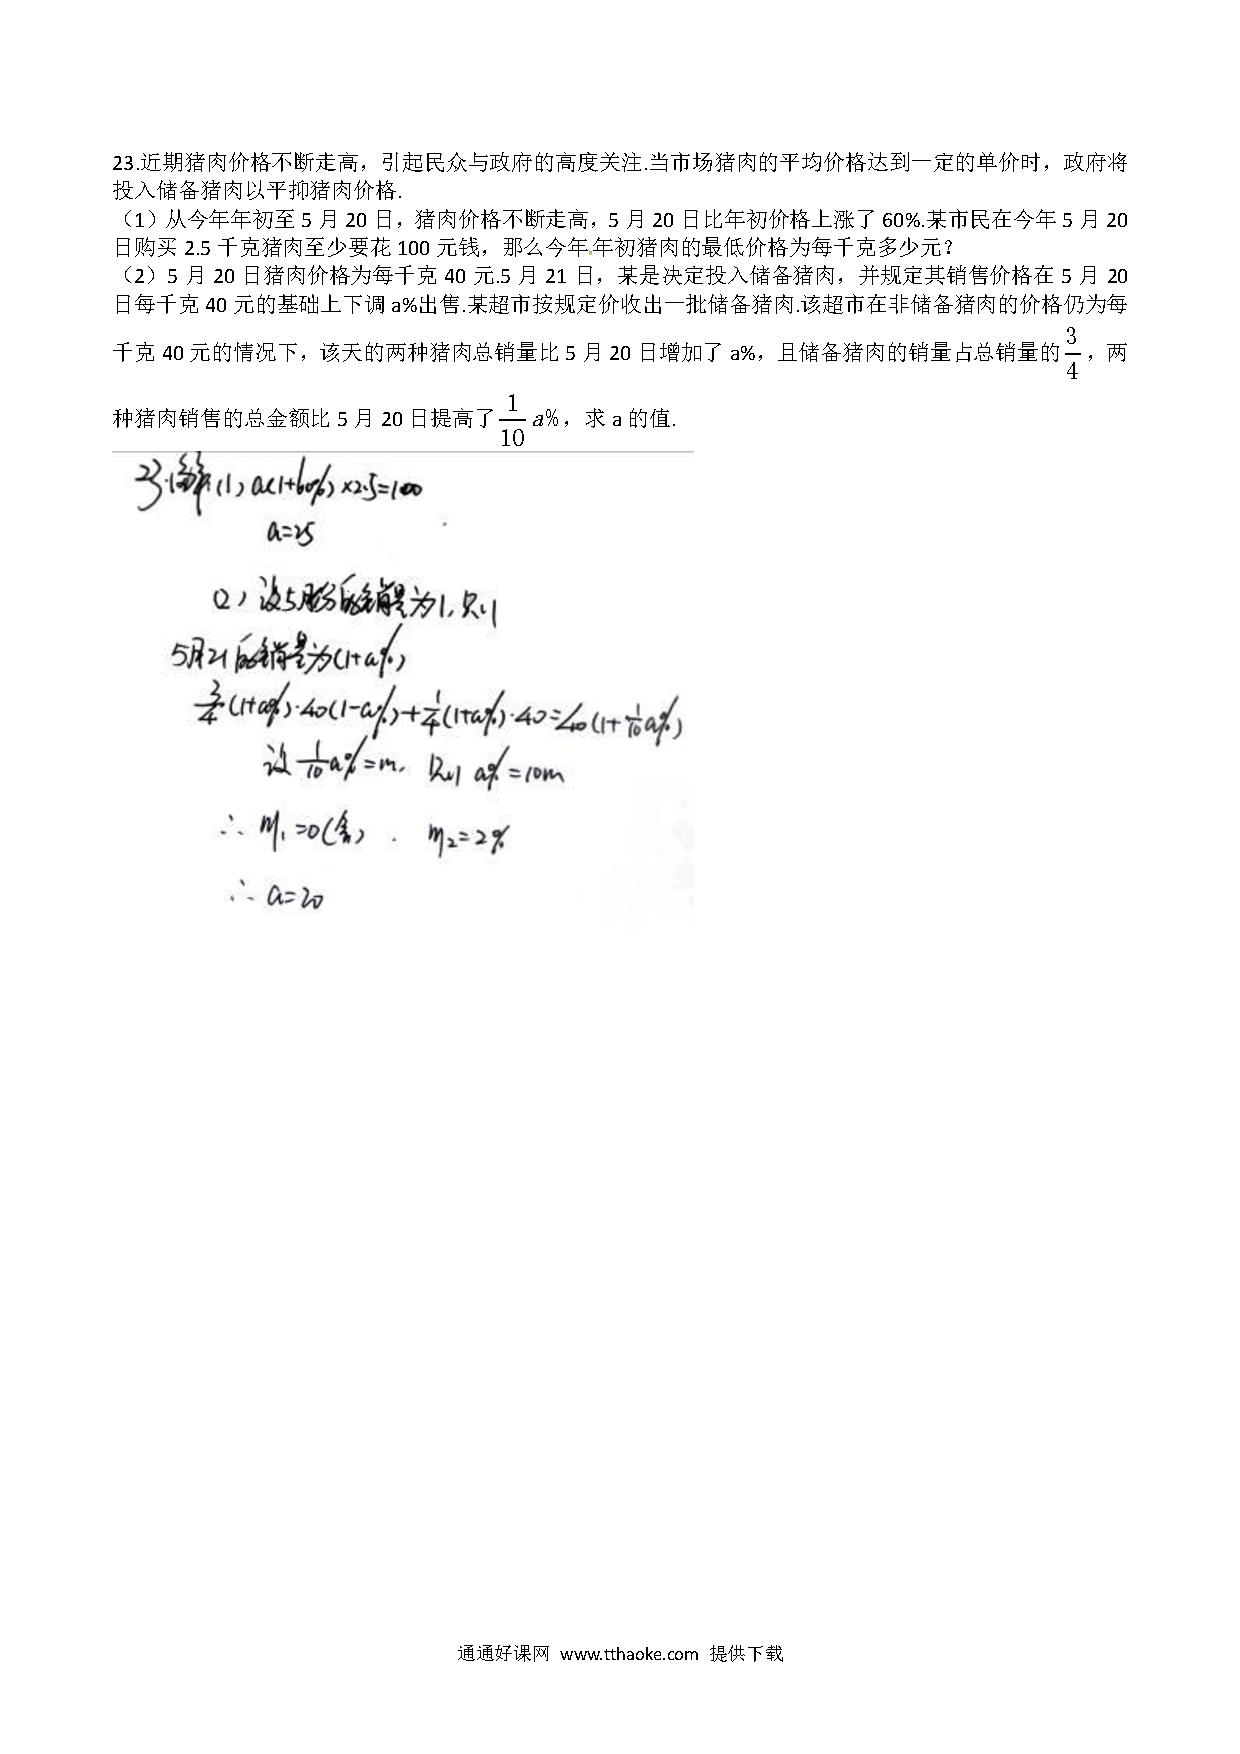 23.近期猪肉价格不断走高，引起民众与政府的高度关注.当市场猪肉的平均价格达到一定的单价时，政府将
投入储备猪肉以平抑猪肉价格.
（1）从今年年初至 5 月 20 日，猪肉价格不断走高，5 月 20 日比年初价格上涨了 60%.某市民在今年 5 月 20
日购买 2.5 千克猪肉至少要花 100 元钱，那么今年年初猪肉的最低价格为每千克多少元？
（2）5 月 20 日猪肉价格为每千克 40 元.5 月 21 日，某是决定投入储备猪肉，并规定其销售价格在 5 月 20
日每千克 40 元的基础上下调 a%出售.某超市按规定价收出一批储备猪肉.该超市在非储备猪肉的价格仍为每
千克 40 元的情况下，该天的两种猪肉总销量比 5 月 20 日增加了 a%，且储备猪肉的销量占总销量的 3/4，两
种猪肉销售的总金额比 5 月 20 日提高了 1/10 a%，求 a 的值.
23.解(1) a(1+60%)×2.5=100
a=25
(2) 设5月份的销量为1,则
5月21的销量为(1+a%)
3/4(1+a%)·40(1-a%)+1/4(1+a%)·40=40(1+1/10a%)
设 1/10a%=m, 则 a%=10m
∴ m₁=0(舍). m₂=2%
∴ a=20
通通好课网 www.tthaoke.com 提供下载